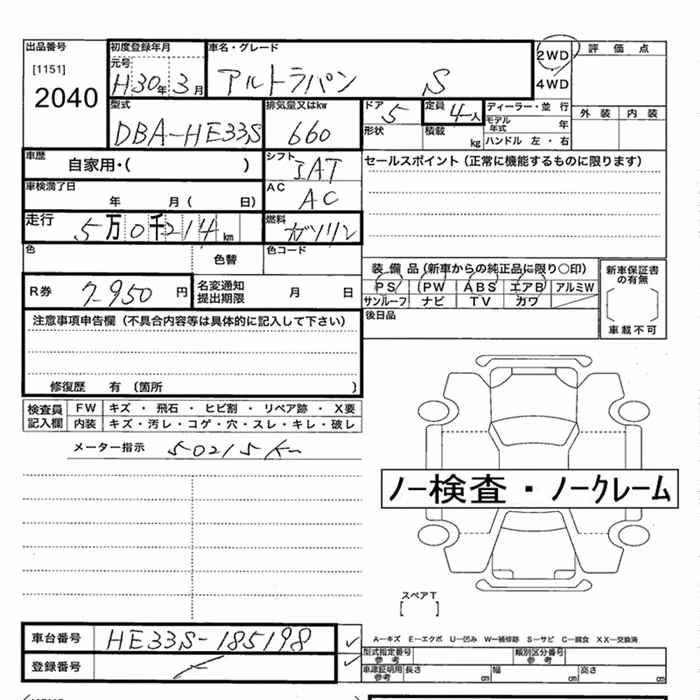 出品番号 初度登録年月 車名・グレード 2WD 評価点
[1151] 元号 4WD
2040 H30年3月 アルトラパン S
型式 排気量又はkw ドア 定員 ディーラー・並 行 外 装 内 装
DBA-HE33S 660 5 4人 モデル年式 年
形状 積載 kg ハンドル 左・右
車歴 自家用・( ) シフト IAT セールスポイント(正常に機能するものに限ります)
車検満了日 年 月( 日) AC AC
走行 5万0千214km 燃料 ガソリン
色 色替 色コード
装備品(新車からの純正品に限り○印) 新車保証書の有無
R券 7950円 名変通知提出期限 月 日 PS PW ABS エアB アルミW
サンルーフ ナビ TV カワ
注意事項申告欄(不具合内容等は具体的に記入して下さい) 後日品 車載不可
修復歴 有 (箇所 )
検査員記入欄 FW キズ・飛石・ヒビ割・リペア跡・X要
内装 キズ・汚レ・コゲ・穴・スレ・キレ・破レ
メーター指示 50215K
ノー検査・ノークレーム
スペアT
[ ]
車台番号 HE33S-185198
A-キズ E-エクボ U-凹み W-補修跡 S-サビ C-腐食 XX-交換済
登録番号
型式指定番号 参考 類別区分番号 参考
車庫証明用 参考 長さ cm 幅 cm 高さ cm